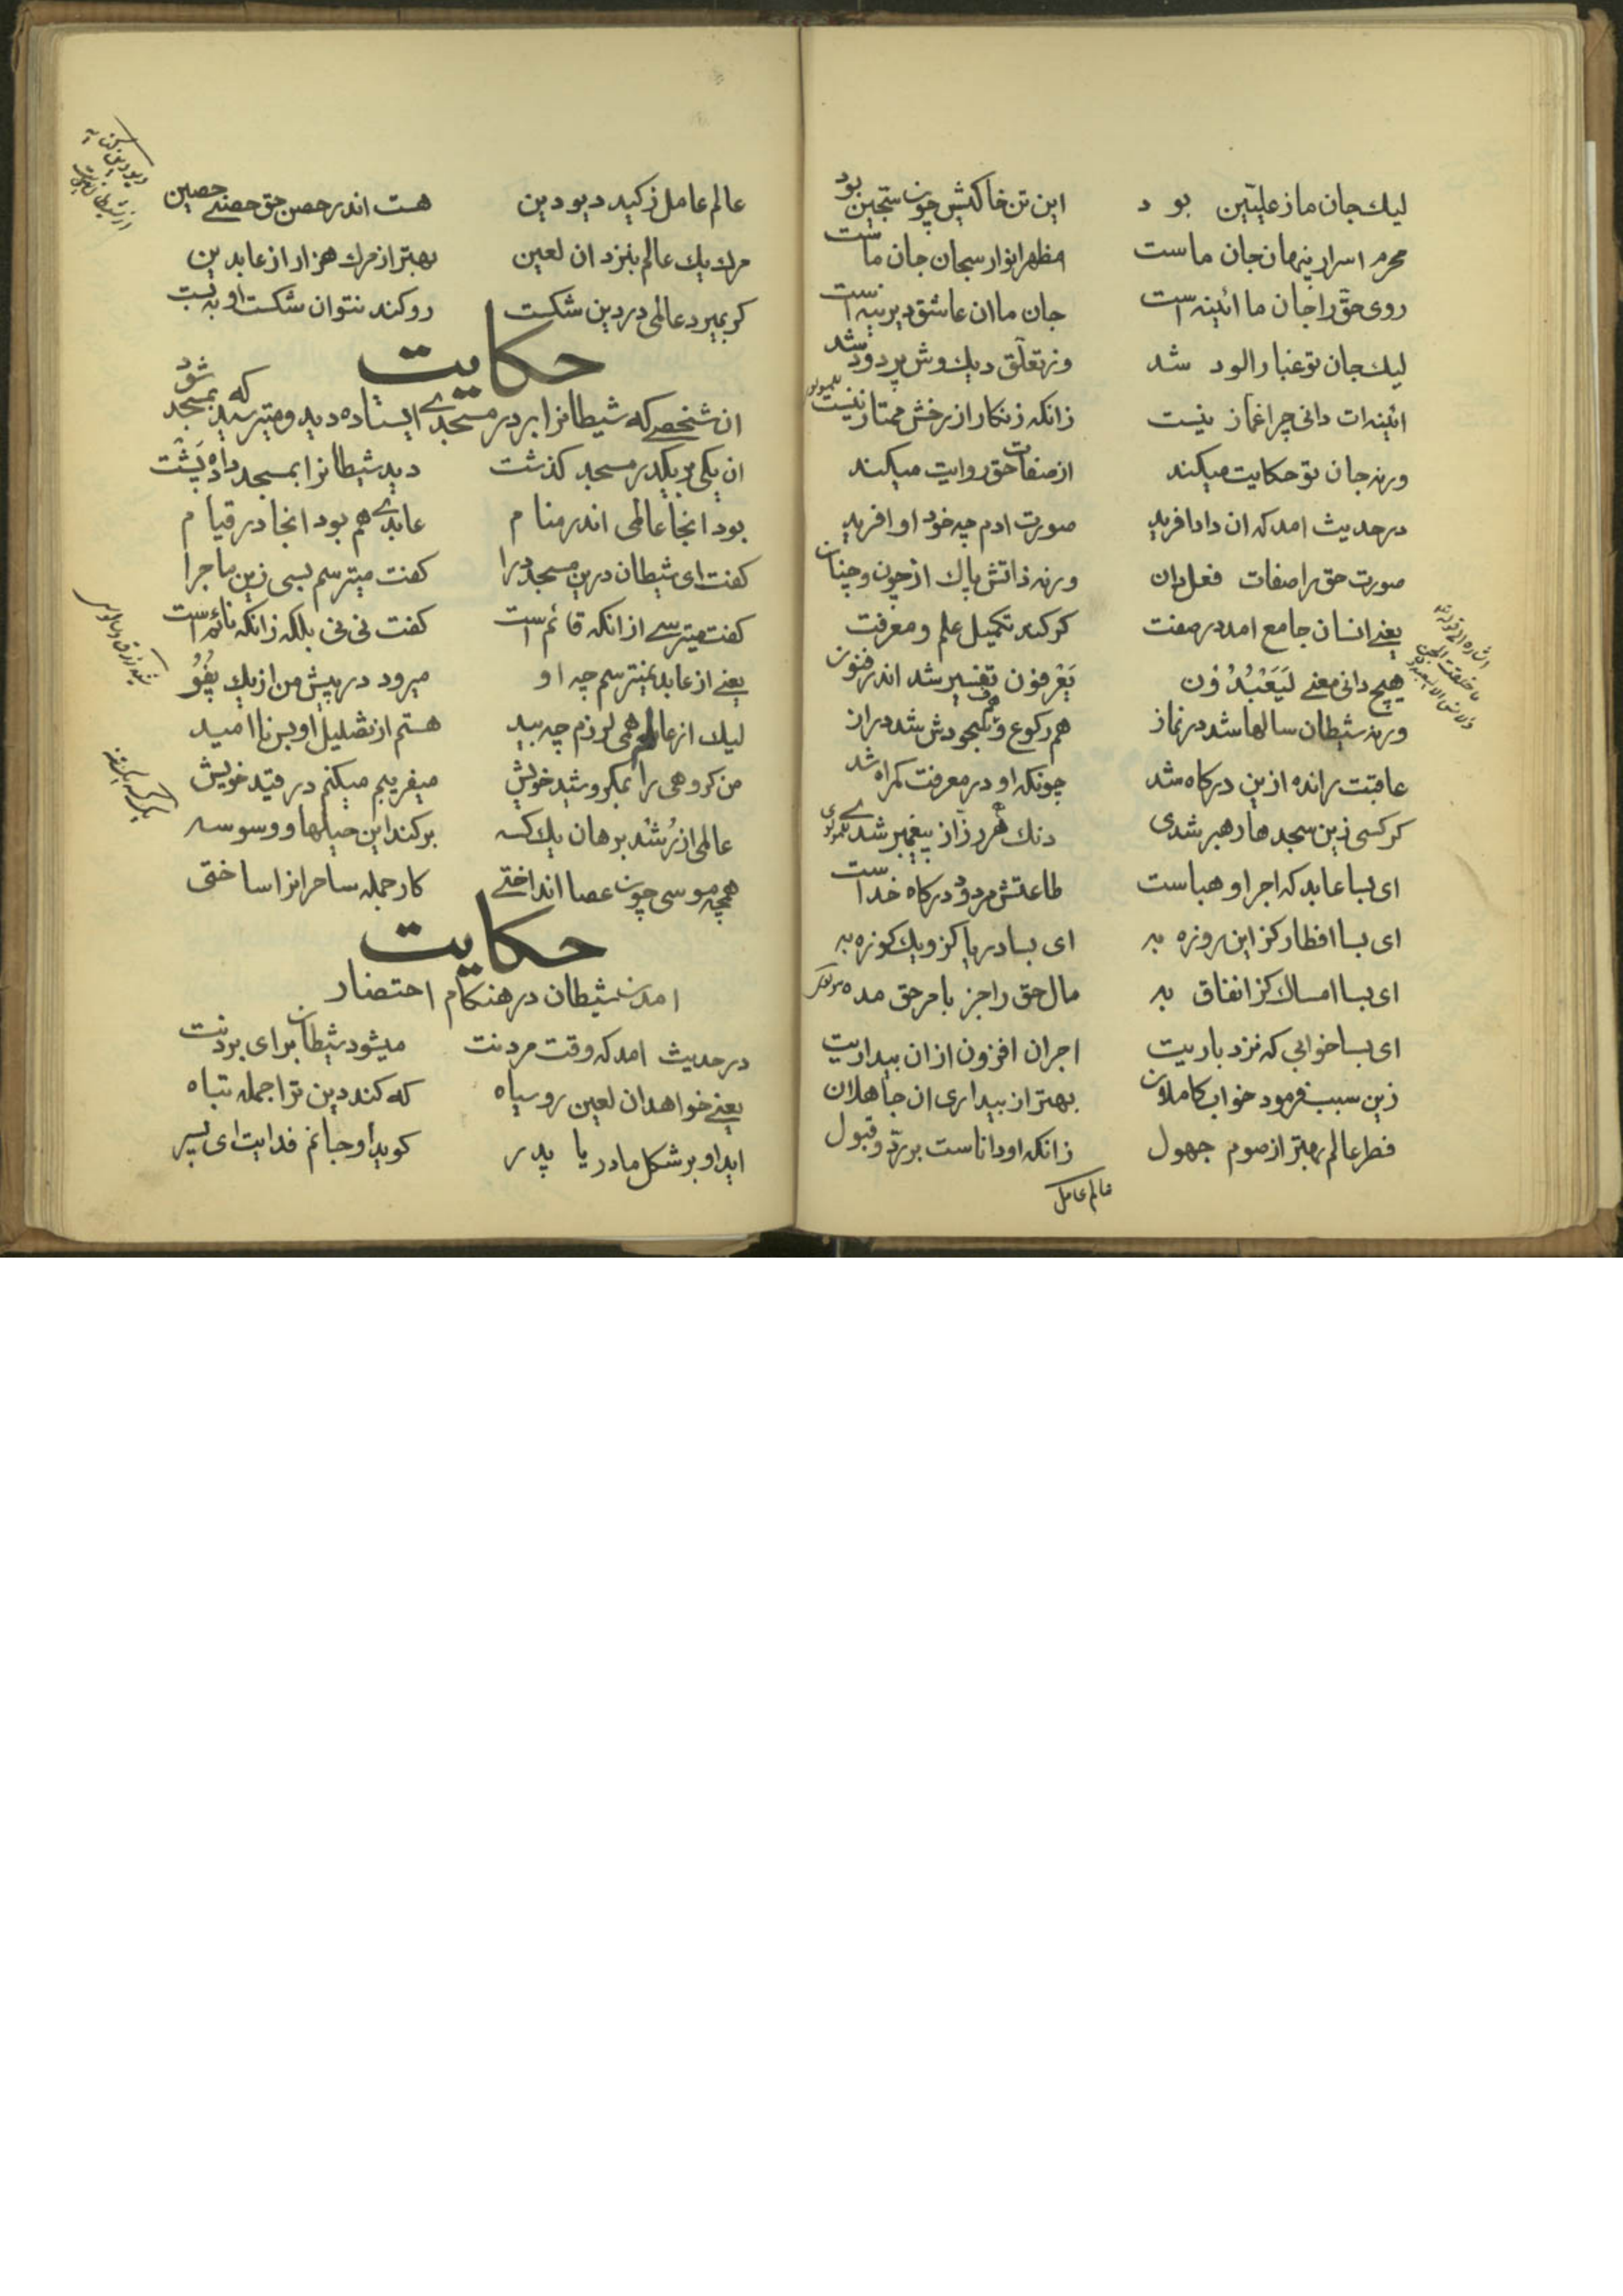 لیك جان ما ز علیّین بود این تن خاکیش چون سجّین بود
محرم اسرار پنهان جان ماست مظهر انوار سبحان جان ماست
روی حقّ را جان ما ائینه است جان ما ان عاشق دیرینه است
لیك جان تو غبار الود شد وز تعلّق دیك وش پر دود شد
ائینه ات دانی چرا غماز نیست زانکه زنکار از رخش ممتاز نیست
ورنه جان تو حکایت میکند از صفات حق روایت میکند
در حدیث امد که ان دادا فرید صورت ادم چه خود او افرید
صورت حق را صفات فعل دان ورنه ذاتش پاك از چون و چنان
یعنے انسان جامع امد در صفت کر کند تکمیل علم و معرفت
هیچ دانی معنے لیَعْبُدُون یَعْرفون تفسیر شد اندر فنون
ورنه شیطان سالها شد در نماز هم رکوع و هم سجودش شد دراز
عاقبت رانده ازین درکاه شد چونکه او در معرفت کمراه شد
کر کسی زین سجدها رهبر شدی دنك هر رزّاز پیغمبر شدے
ای بسا عابد که اجر او هباست طاعتش مردود درکاه خداست
ای بسا افطار کز این روزه به ای بسا دریا کز و یك کوزه به
ای بسا امساك کز انفاق به مال حق را جز بامر حق مده
ای بسا خوابی که نزد باریت اجر ان افزون از ان بیداریت
زین سبب فرمود خواب کاملان بهتر از بیداری ان جاهلان
فطر عالم بهتر از صوم جهول زانکه او داناست بر ردّ و قبول
عالم عامل
عالم عامل ز کید دیو دین هست اندر حصن حق حصنے حصین
مرك یك عالم بنزد ان لعین بهتر از مرك هزار از عابدین
کر بمیرد عالمی در دین شکست رو کند نتوان شکست او به بست
حکایت
ان شخصے که شیطانرا بر در مسجدے ایستاده دید و میترسید که بمسجد شود
ان یکی بر یکدر مسجد کذشت دید شیطانرا بمسجد داده پشت
بود انجا عالمی اندر منام عابدے هم بود انجا در قیام
کفت ای شیطان درین مسجد درا کفت میترسم بسی زین ماجرا
کفت میترسے از انکه قائم است کفت نی نی بلکه زانکه نائم است
یعنے از عابد نمیترسم چه او میرود در پیش من از یك پفو
لیك از عالم همی لرزم چه بید هستم از تضلیل او بس نا امید
من کروهی را بمکر و شید خویش میفریبم میکنم در قید خویش
عالمی از رُشد برهان یك کسه برکند این حیلها و وسوسه
همچه موسی چون عصا انداختے کار جمله ساحرانرا ساختی
حکایت
امدن شیطان در هنکام احتضار
در حدیث امد که وقت مردنت میشود شیطان برای بردنت
یعنے خواهد ان لعین رو سیاه که کند دین ترا جمله تباه
اید او بر شکل مادر یا پدر کوید او جانم فدایت ای پسر